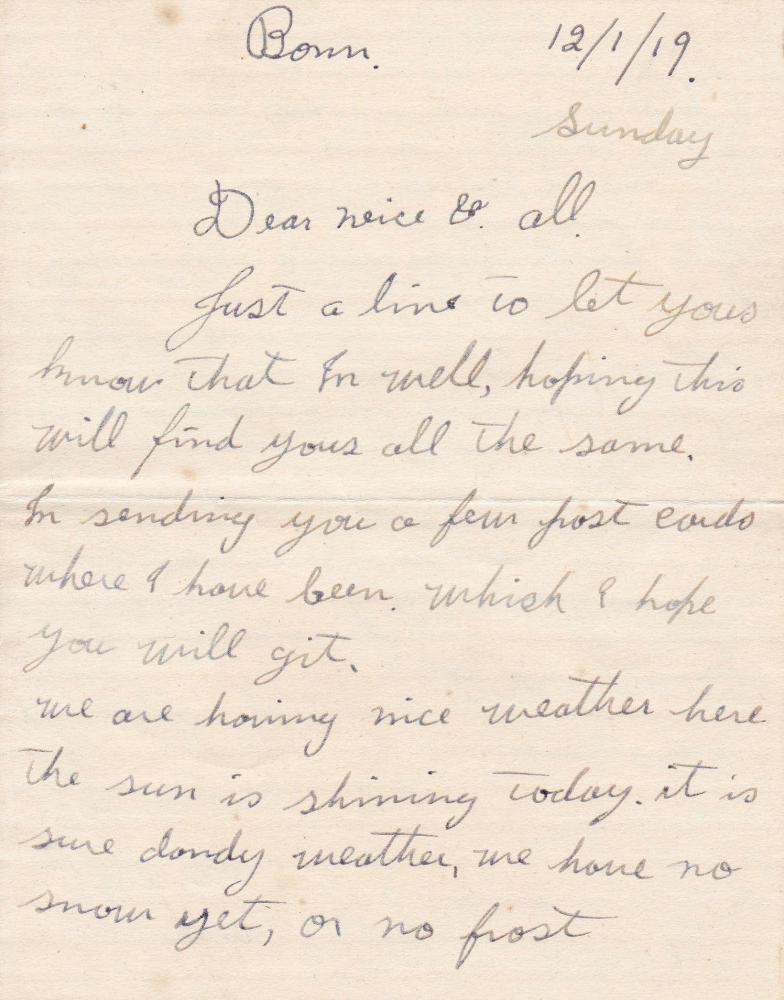 Bonn. 12/1/19.
Sunday
Dear neice & all
Just a line to let yous
know that Im well, hoping this
will find yous all the same.
Im sending you a few post cards
where I have been. which I hope
you will git.
we are having nice weather here
the sun is shining today. it is
sure dandy weather, we have no
snow yet, or no frost